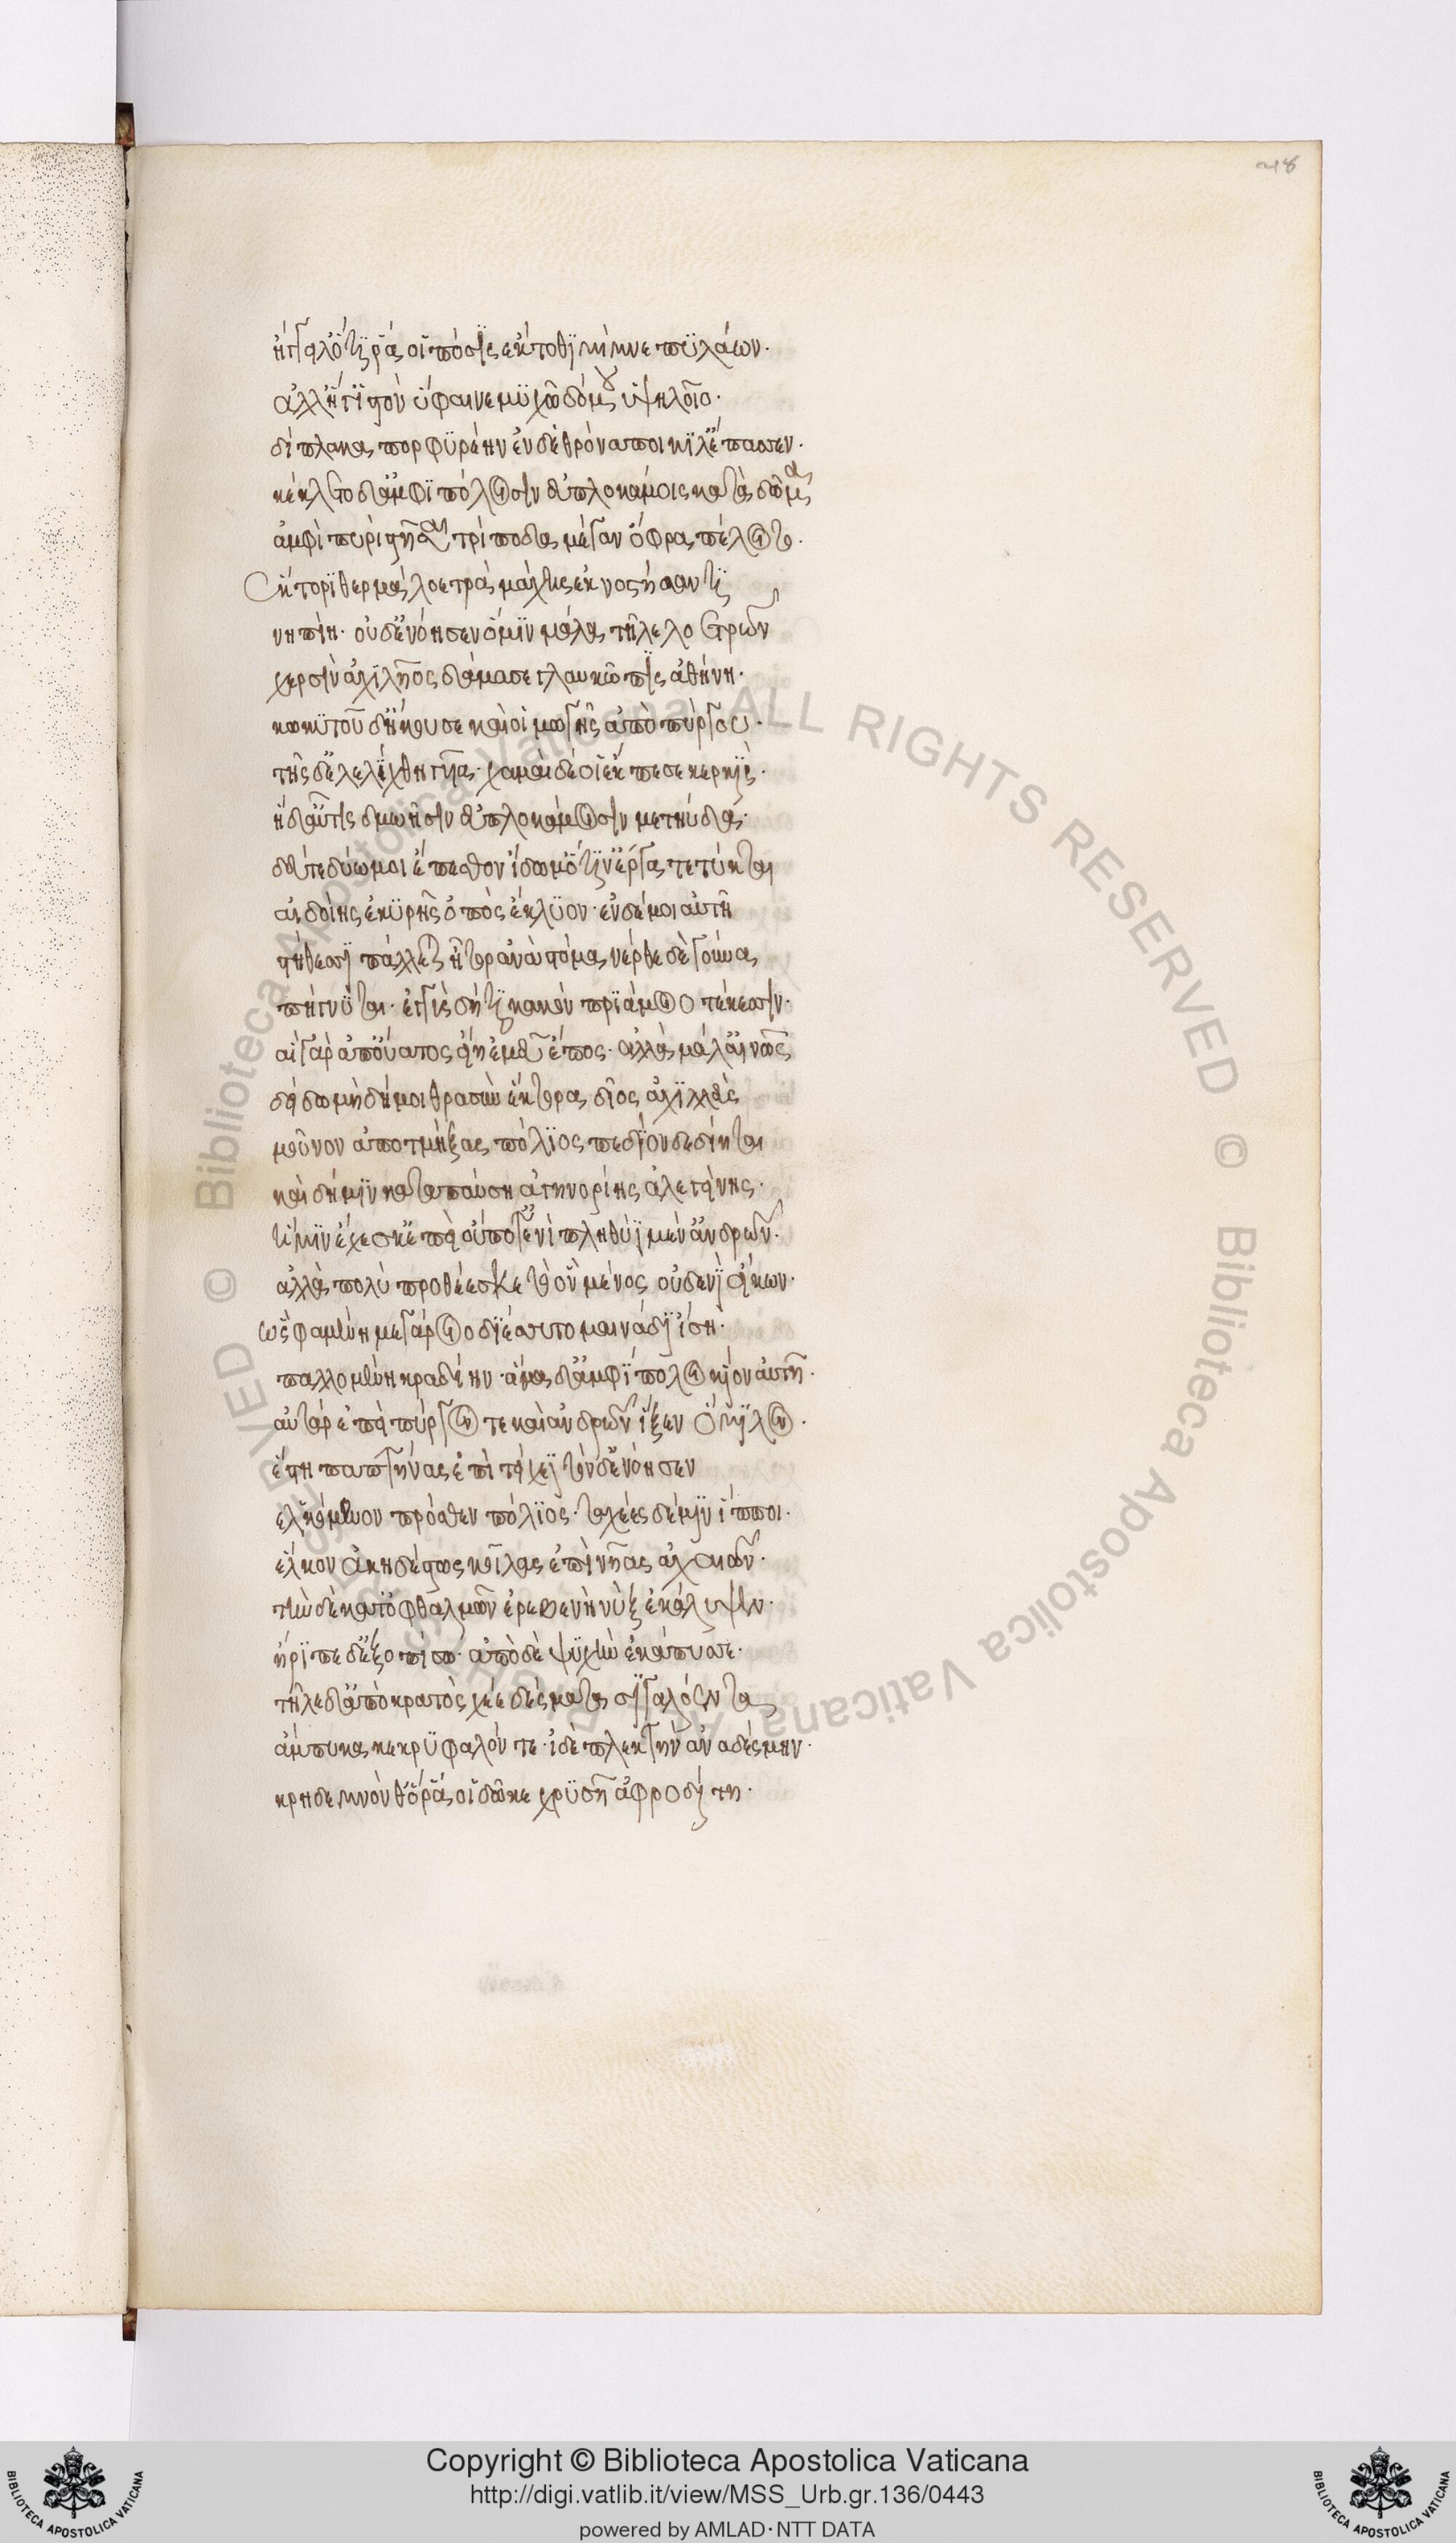 218
ἤγγειλ' ὅττι ῥά οἱ πόσις ἔκτοθι μίμνε πυλάων·
ἀλλ' ἥ γ' ἱστὸν ὕφαινε μυχῷ δόμου ὑψηλοῖο·
δίπλακα πορφυρέην ἐν δὲ θρόνα ποικίλ' ἔπασσεν·
κέκλετο δ' ἀμφιπόλοισιν ἐϋπλοκάμοις κατὰ δῶμα
ἀμφὶ πυρὶ στῆσαι τρίποδα μέγαν ὄφρα πέλοιτο·
Ἕκτορι θερμὰ λοετρὰ μάχης ἐκνοστήσαντι
νηπίη· οὐδ' ἐνόησεν ὅ μιν μάλα τῆλε λοετρῶν
χερσὶν ἀχιλῆος δάμασε γλαυκῶπις ἀθήνη·
κωκυτοῦ δ' ἤκουσε καὶ οἰμωγῆς ἀπὸ πύργου·
τῆς δ' ἐλελίχθη γυῖα· χαμαὶ δέ οἱ ἔκπεσε κερκίς·
ἡ δ' αὖτις δμωῇσιν ἐϋπλοκάμοισιν μετηύδα·
δεῦτε δύω μοι ἕπεσθον ἴδωμ' ὅτιν' ἔργα τέτυκται
αἰδοίης ἑκυρῆς ὀπὸς ἔκλυον· ἐν δ' ἐμοὶ αὐτῇ
στήθεσι πάλλεται ἦτορ ἀνὰ στόμα νέρθε δὲ γοῦνα
πήγνυται· ἐγγὺς δή τι κακὸν πριάμοιο τέκεσσιν·
αἲ γὰρ ἀπ' οὔατος εἴη ἐμεῦ ἔπος· ἀλλὰ μάλ' αἰνῶς
δείδω μὴ δή μοι θρασὺν ἕκτορα δῖος ἀχιλλεὺς
μοῦνον ἀποτμήξας πόλιος πεδίον δὲ δίηται
καὶ δή μιν καταπαύσῃ ἀγηνορίης ἀλεγεινῆς·
ἥ μιν ἔχεσκ' ἐπεὶ οὔποτ' ἐνὶ πληθύϊ μέν' ἀνδρῶν·
ἀλλὰ πολὺ προθέεσκε τὸ ὃν μένος οὐδενὶ εἴκων·
ὣς φαμένη μεγάροιο διέσσυτο μαινάδι ἴση·
παλλομένη κραδίην· ἅμα δ' ἀμφίπολοι κίον αὐτῇ·
αὐτὰρ ἐπεὶ πύργον τε καὶ ἀνδρῶν ἷξεν ὅμιλον·
ἔστη παπτήνας ἐπὶ τείχεϊ τὸν δ' ἐνόησεν
ἑλκόμενον πρόσθεν πόλιος· ταχέες δέ μιν ἵπποι·
ἕλκον ἀκηδέστως κοίλας ἐπὶ νῆας ἀχαιῶν·
τὴν δὲ κατ' ὀφθαλμῶν ἐρεβεννὴ νὺξ ἐκάλυψεν·
ἤριπε δ' ἐξοπίσω· ἀπὸ δὲ ψυχὴν ἐκάπυσσε·
τῆλε δ' ἀπὸ κρατὸς χέε δέσματα σιγαλόεντα
ἄμπυκα κεκρύφαλόν τε· ἰδὲ πλεκτὴν ἀναδέσμην·
κρήδεμνόν θ' ὅ ῥά οἱ δῶκε χρυσῆ ἀφροδίτη·
© Biblioteca Apostolica Vaticana ALL RIGHTS RESERVED © Biblioteca Apostolica Vaticana ALL RIGHTS RESERVED
Copyright © Biblioteca Apostolica Vaticana
http://digi.vatlib.it/view/MSS_Urb.gr.136/0443
powered by AMLAD·NTT DATA
BIBLIOTECA APOSTOLICA VATICANA
BIBLIOTECA APOSTOLICA VATICANA